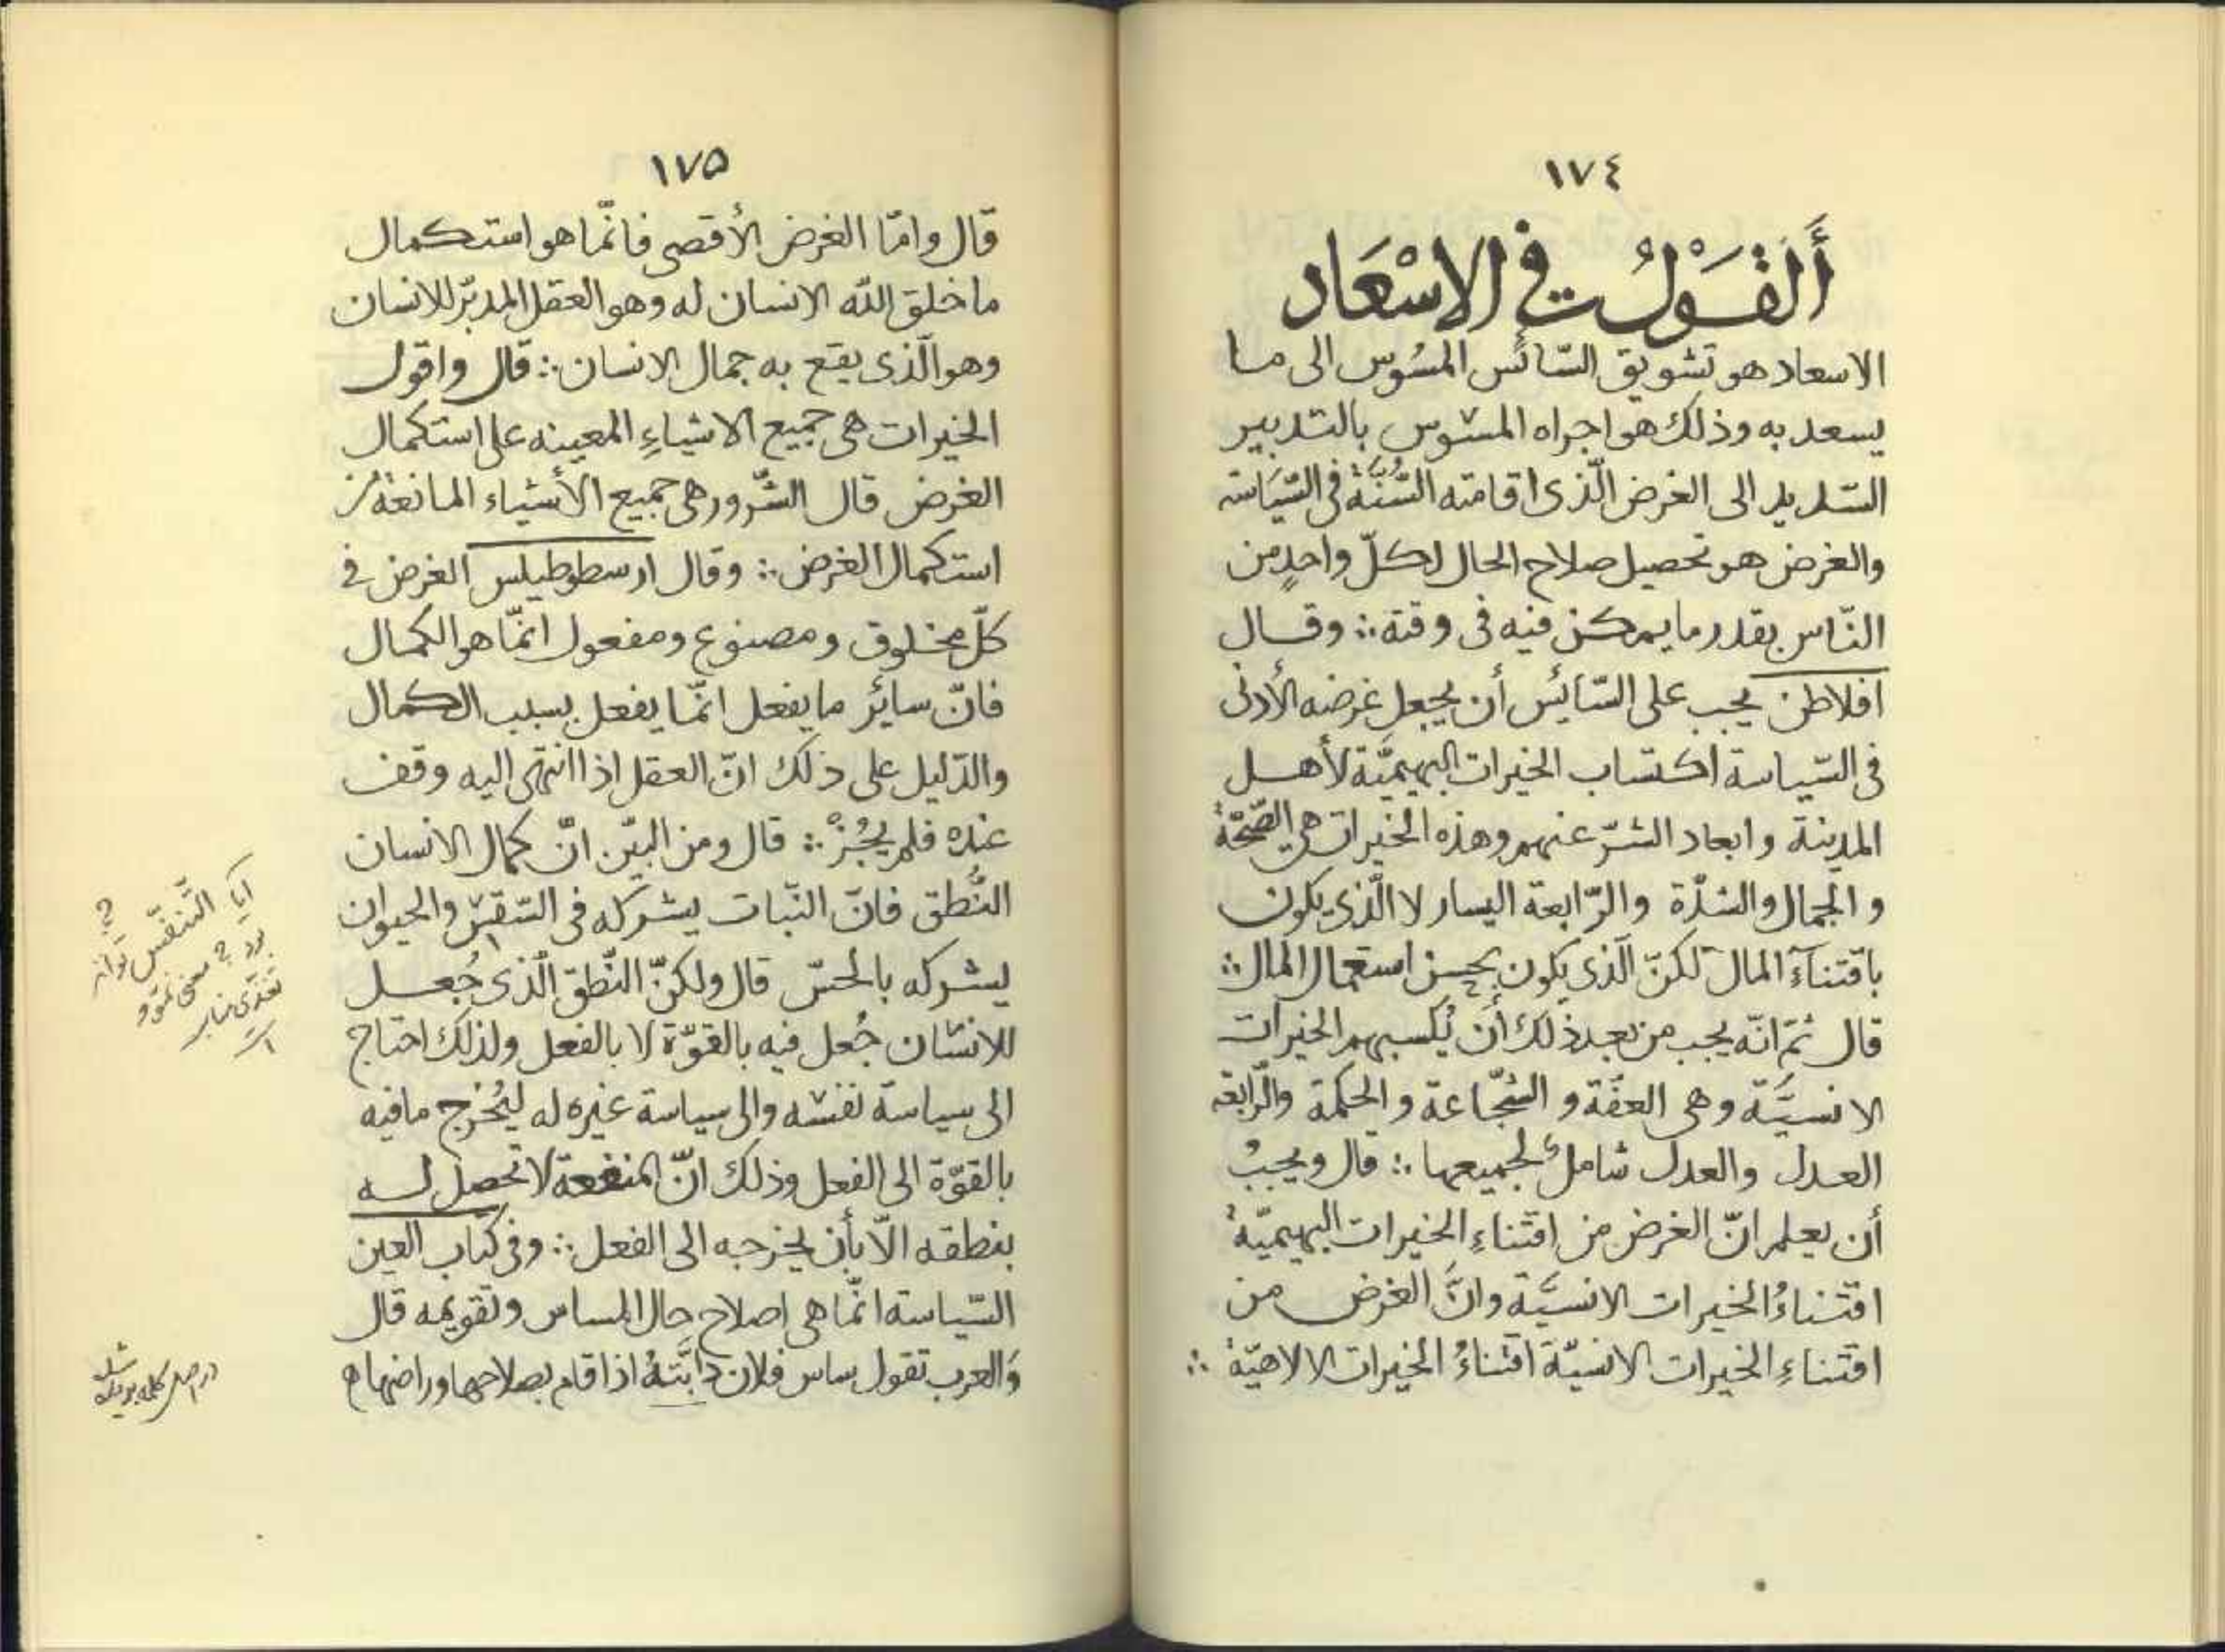 ١٧٤
أَلْقَوْلُ فى الاسْعَاد
الاسعاد هو تشويق السّائس المسُوس الى ما
يسعد به وذلك هو اجراه المسوس بالتدبير
السّديد الى الغرض الّذى اقامته السُّنَّةُ فى السّيَاسة
والغرض هو تحصيل صلاح الحال لكلّ واحدٍ من
النّاس بقدر ما يمكن فيه فى وقتة ∴ وقال
افلاطن يجب على السّايُس أن يجعل غرضه الأدنى
فى السّياسة اكتساب الخيرات البهيميَّة لأهل
المدينة وابعاد الشرّ عنهم وهذه الخيرات هى الصّحّةُ
والجمال والشدّة والرّابعة اليسار لا الّذى يكون
باقتنآءِ المال لكنّ الّذى يكون بحسن استعمال المال ∴
قال ثمّ انّه يجب من بعد ذلك أَن يُكسبهم الخيرات
الانسيَّة وهى العفّة و الشّجّاعة والحكمة والرّابعة
العدل والعدل شاملٌ لجميعها ∴ قال ويجبُ
أن يعلم انّ الغرض من اقتناءِ الخيرات البهيميّةُ
اقتناءُ الخيرات الانسيَّة وانَّ الغرض من
اقتناءِ الخيرات الانسيّة اقتناءُ الخيرات الالاهيّة ∴
١٧۵
قال وامّا الغرض الأقصى فانّما هو استكمال
ما خلق اللّه الانسان له وهو العقل المدبّر للانسان
وهو الّذى يقع به جمال الانسان ∴ قال واقول
الخيرات هى جميع الاشياءِ المعينه على استكمال
الغرض قال الشّرور هى جميع الأشياء المانعةُ من
استكمال الغرض ∴ وقال ارسطوطيلس الغرض فى
كلّ مخلوق ومصنوع ومفعول انّما هو الكمال
فانّ سايُر ما يفعل انّما يفعل بسبب الكمال
والدّليل على ذلك انّ العقل اذا انتهى اليه وقف
عنده فلم يجُزْه ∴ قال ومن البيّن انّ كمال الانسان
النُّطق فانّ النّبات يشركه فى والحيوان
يشركه بالحسّ قال ولكنّ النّطق الّذى جُعل
للانسان جُعل فيه بالقوّة لا بالفعل ولذلك احتاج
الى سياسة نفسه والى سياسة غيره له ليُخرج ما فيه
بالقوّة الى الفعل وذلك انّ المنفعة لا تحصل له
بنطقه الّا بأن يخرجه الى الفعل ∴ وفى كتاب العين
السّياسة انّما هى اصلاح حال المساس وتقويمه قال
وَالعرب تقول ساس فلان دَابَّتهُ اذا اقام بصلاحها وراضها ه
ايا التّنفّس تواند
بود ؟ معنى نموّ و
تغذّى مناسب
است ؟